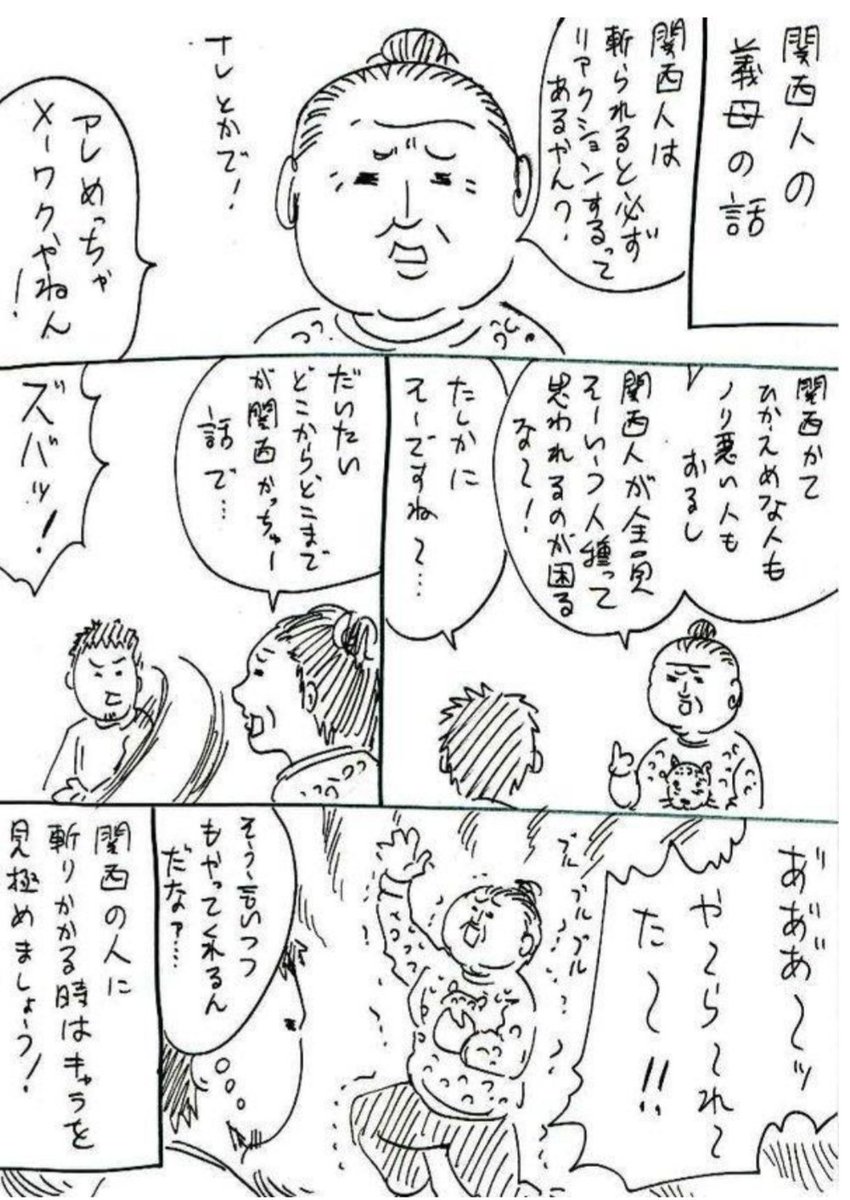 関西人の
義母の話
関西人は
斬られると必ず
リアクションするって
あるやん?
TVとかで!
アレめっちゃ
メーワクやねん
!
関西かて
ひかえめな人も
ノリ悪い人も
おるし
関西人が全員
そーいう人種って
思われるのが困る
な〜!
たしかに
そーですね〜…
だいたい
どこからどこまで
が関西かっちゅー
話で…
ズバッ!
あ゛あ゛あ゛〜ッ
や〜ら〜れ〜
た〜!!
ブルブルブル
そう言いつつ
もやってくれるん
だなァ…
関西の人に
斬りかかる時はキャラを
見極めましょう!